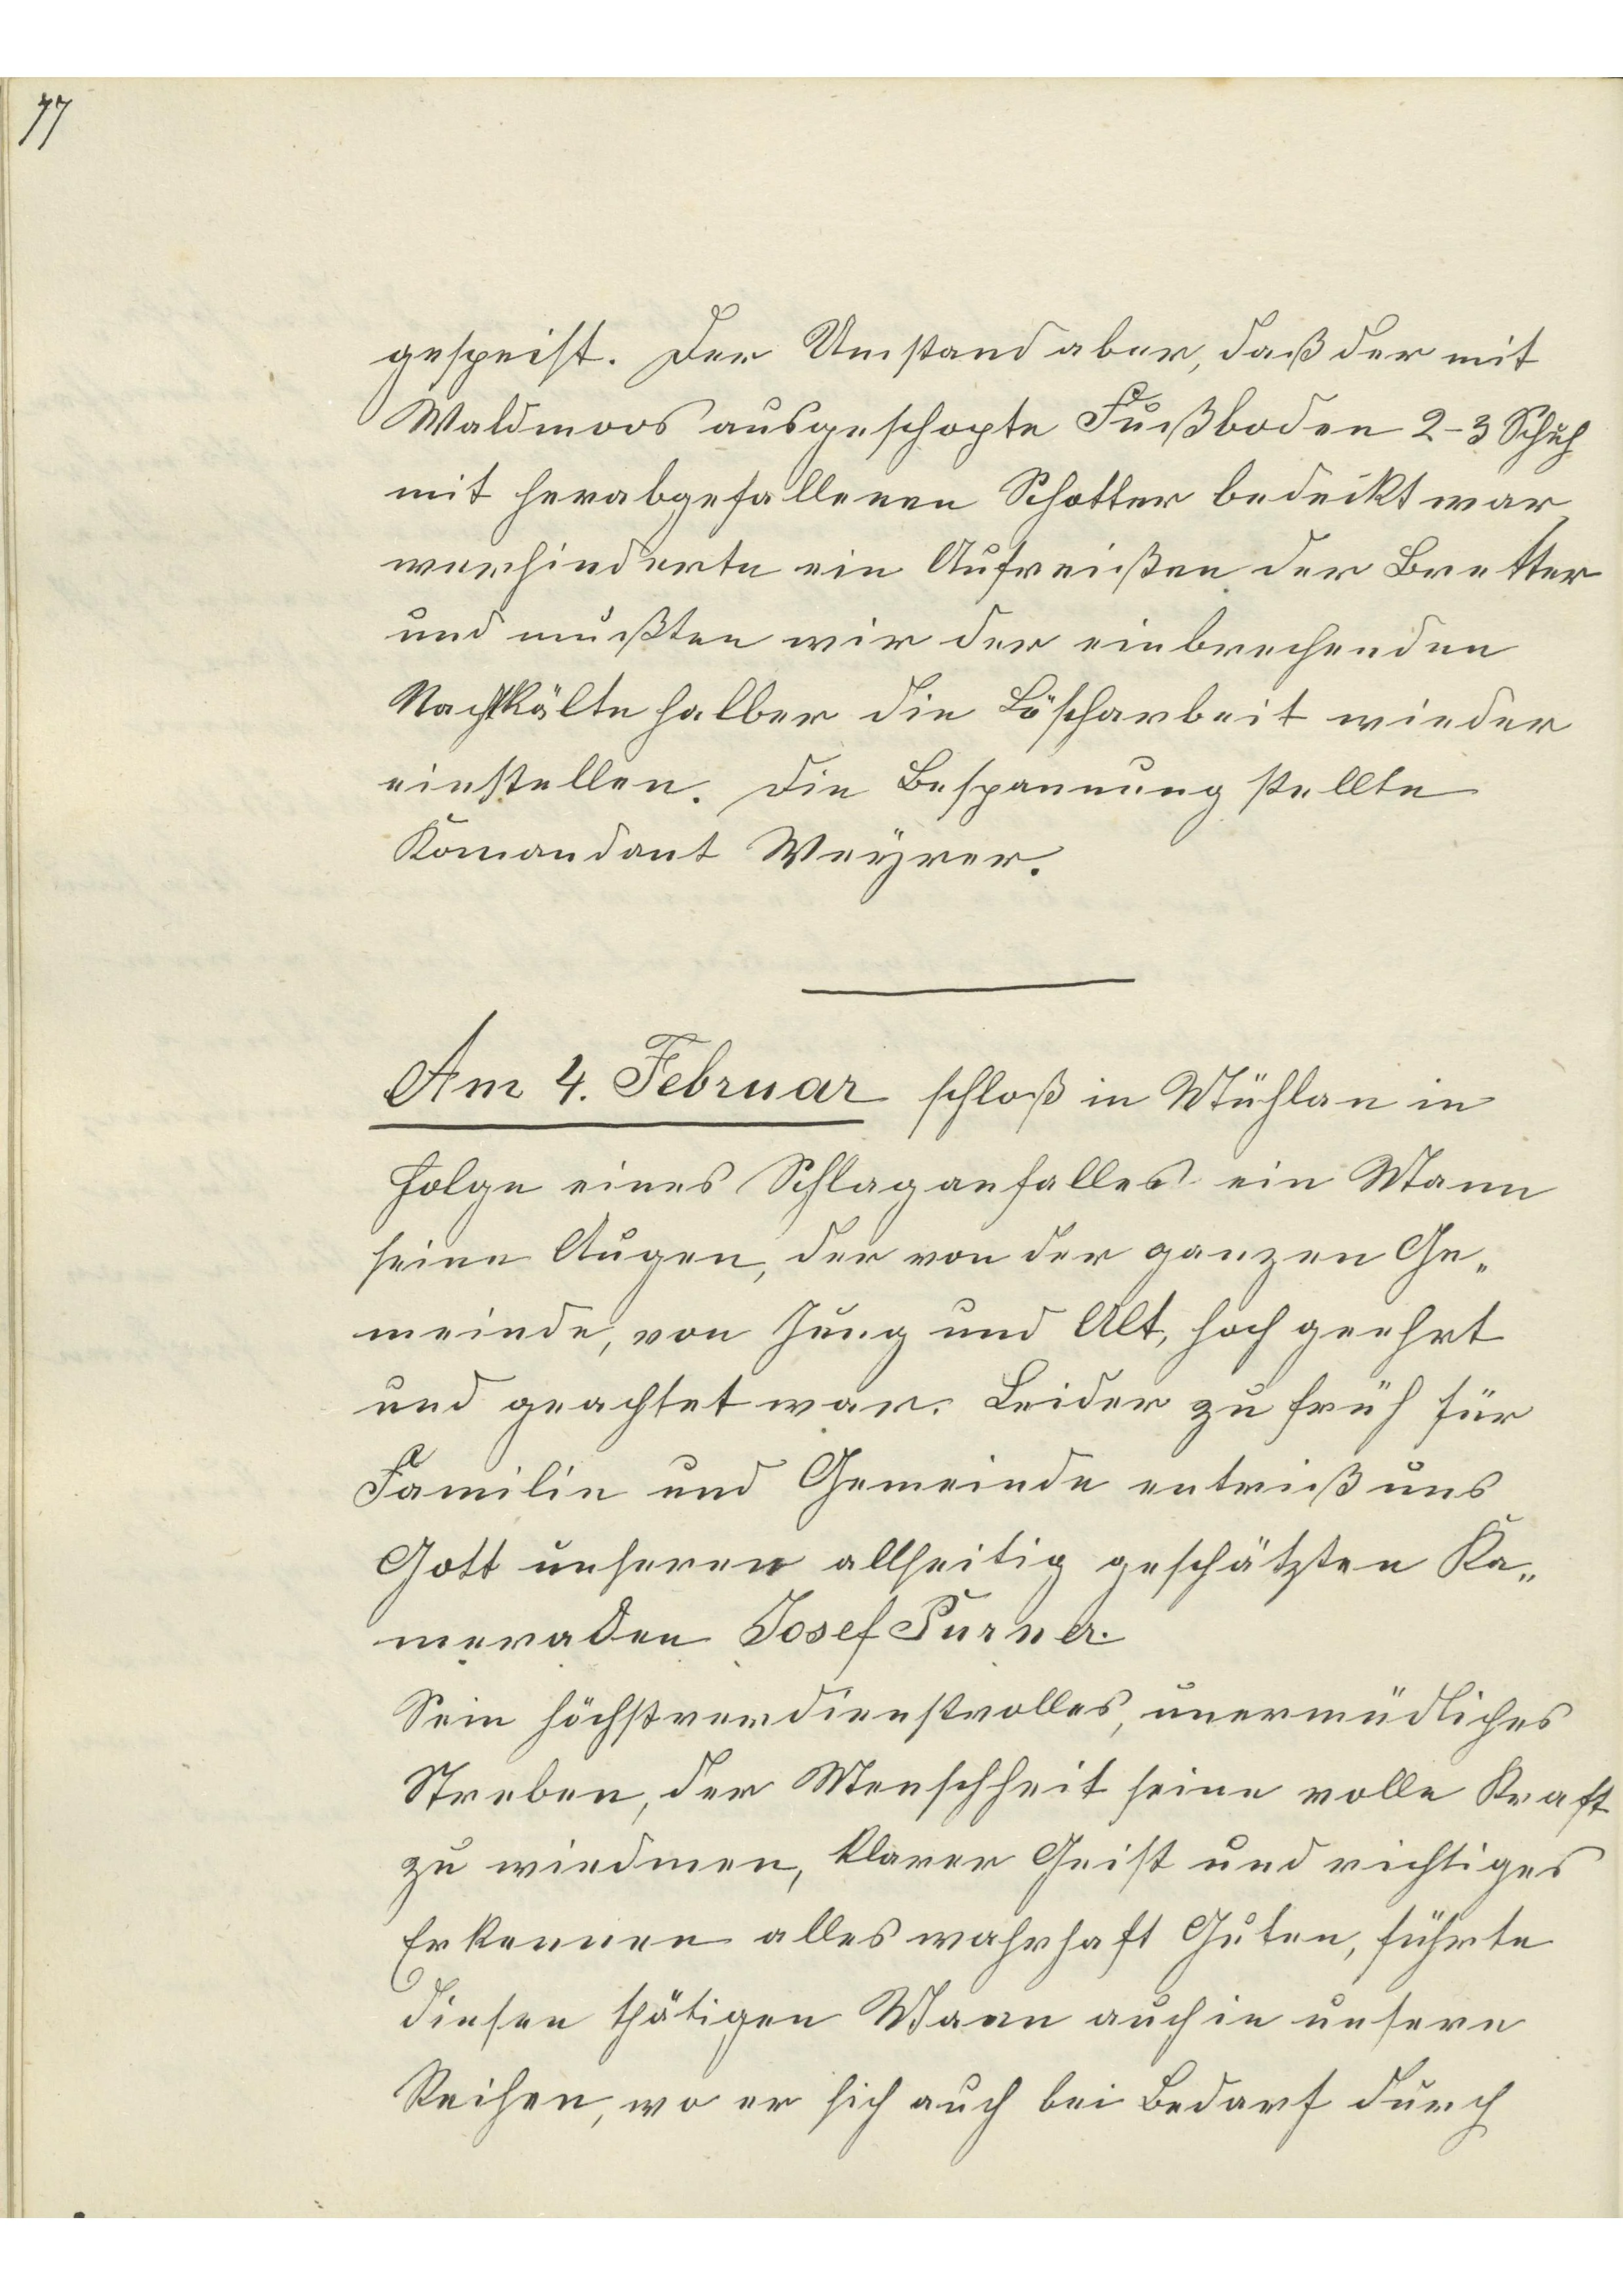 77
gespeist. Der Umstand aber, daß der mit
Waldmoos ausgeschopte Fußboden 2-3 Schuh
mit herabgefallenen Schotter bedeckt war,
verhinderte ein Aufreißen der Bretter
und mußten wir der einbrechenden
Nachtkälte halber die Löscharbeit wieder
einstellen. Die Bespannung stellte
Komandant Weyrer.
Am 4. Februar schloß in Mühlau in
Folge eines Schlaganfalles ein Mann
seine Augen, der von der ganzen Ge„
meinde, von Jung und Alt, hoch geehrt
und geachtet war. Leider zu früh für
Familie und Gemeinde entriß uns
Gott unseren allseitig geschätzten Ka„
meraden Josef Purner.
Sein höchstverdienstvolles, unermüdliches
Streben, der Menschheit seine volle Kraft
zu wiedmen, klarer Geist und richtiges
Erkennen alles wahrhaft Guten, führte
diesen thätigen Mann auch in unsere
Reihen, wo er sich auch bei Bedarf durch